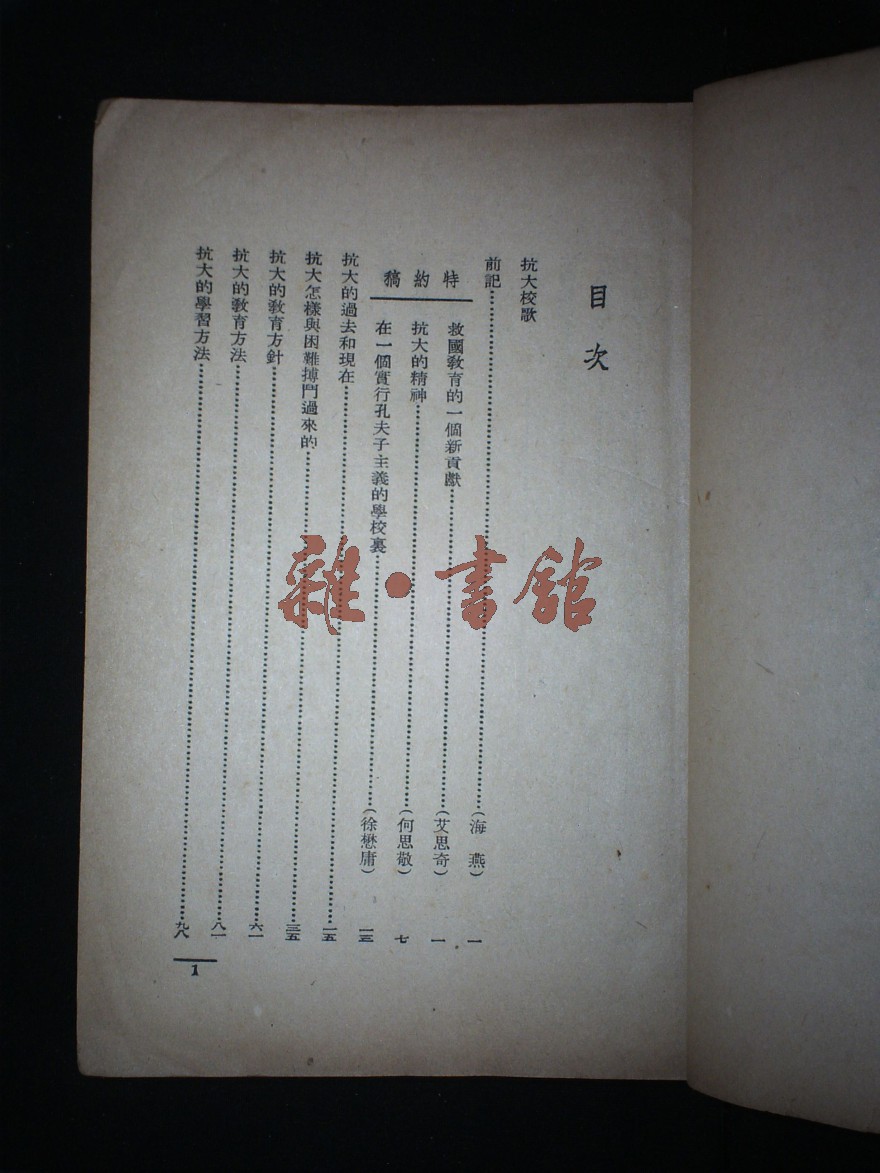 目次
抗大校歌
前記……(海 燕) 一
特約稿
救國教育的一個新貢獻……(艾思奇) 一
抗大的精神……(何思敬) 七
在一個實行孔夫子主義的學校裏……(徐懋庸) 一三
抗大的過去和現在……一五
抗大怎樣與困難搏鬥過來的……三五
抗大的教育方針……六一
抗大的教育方法……八一
抗大的學習方法……九八
1
雜·書館